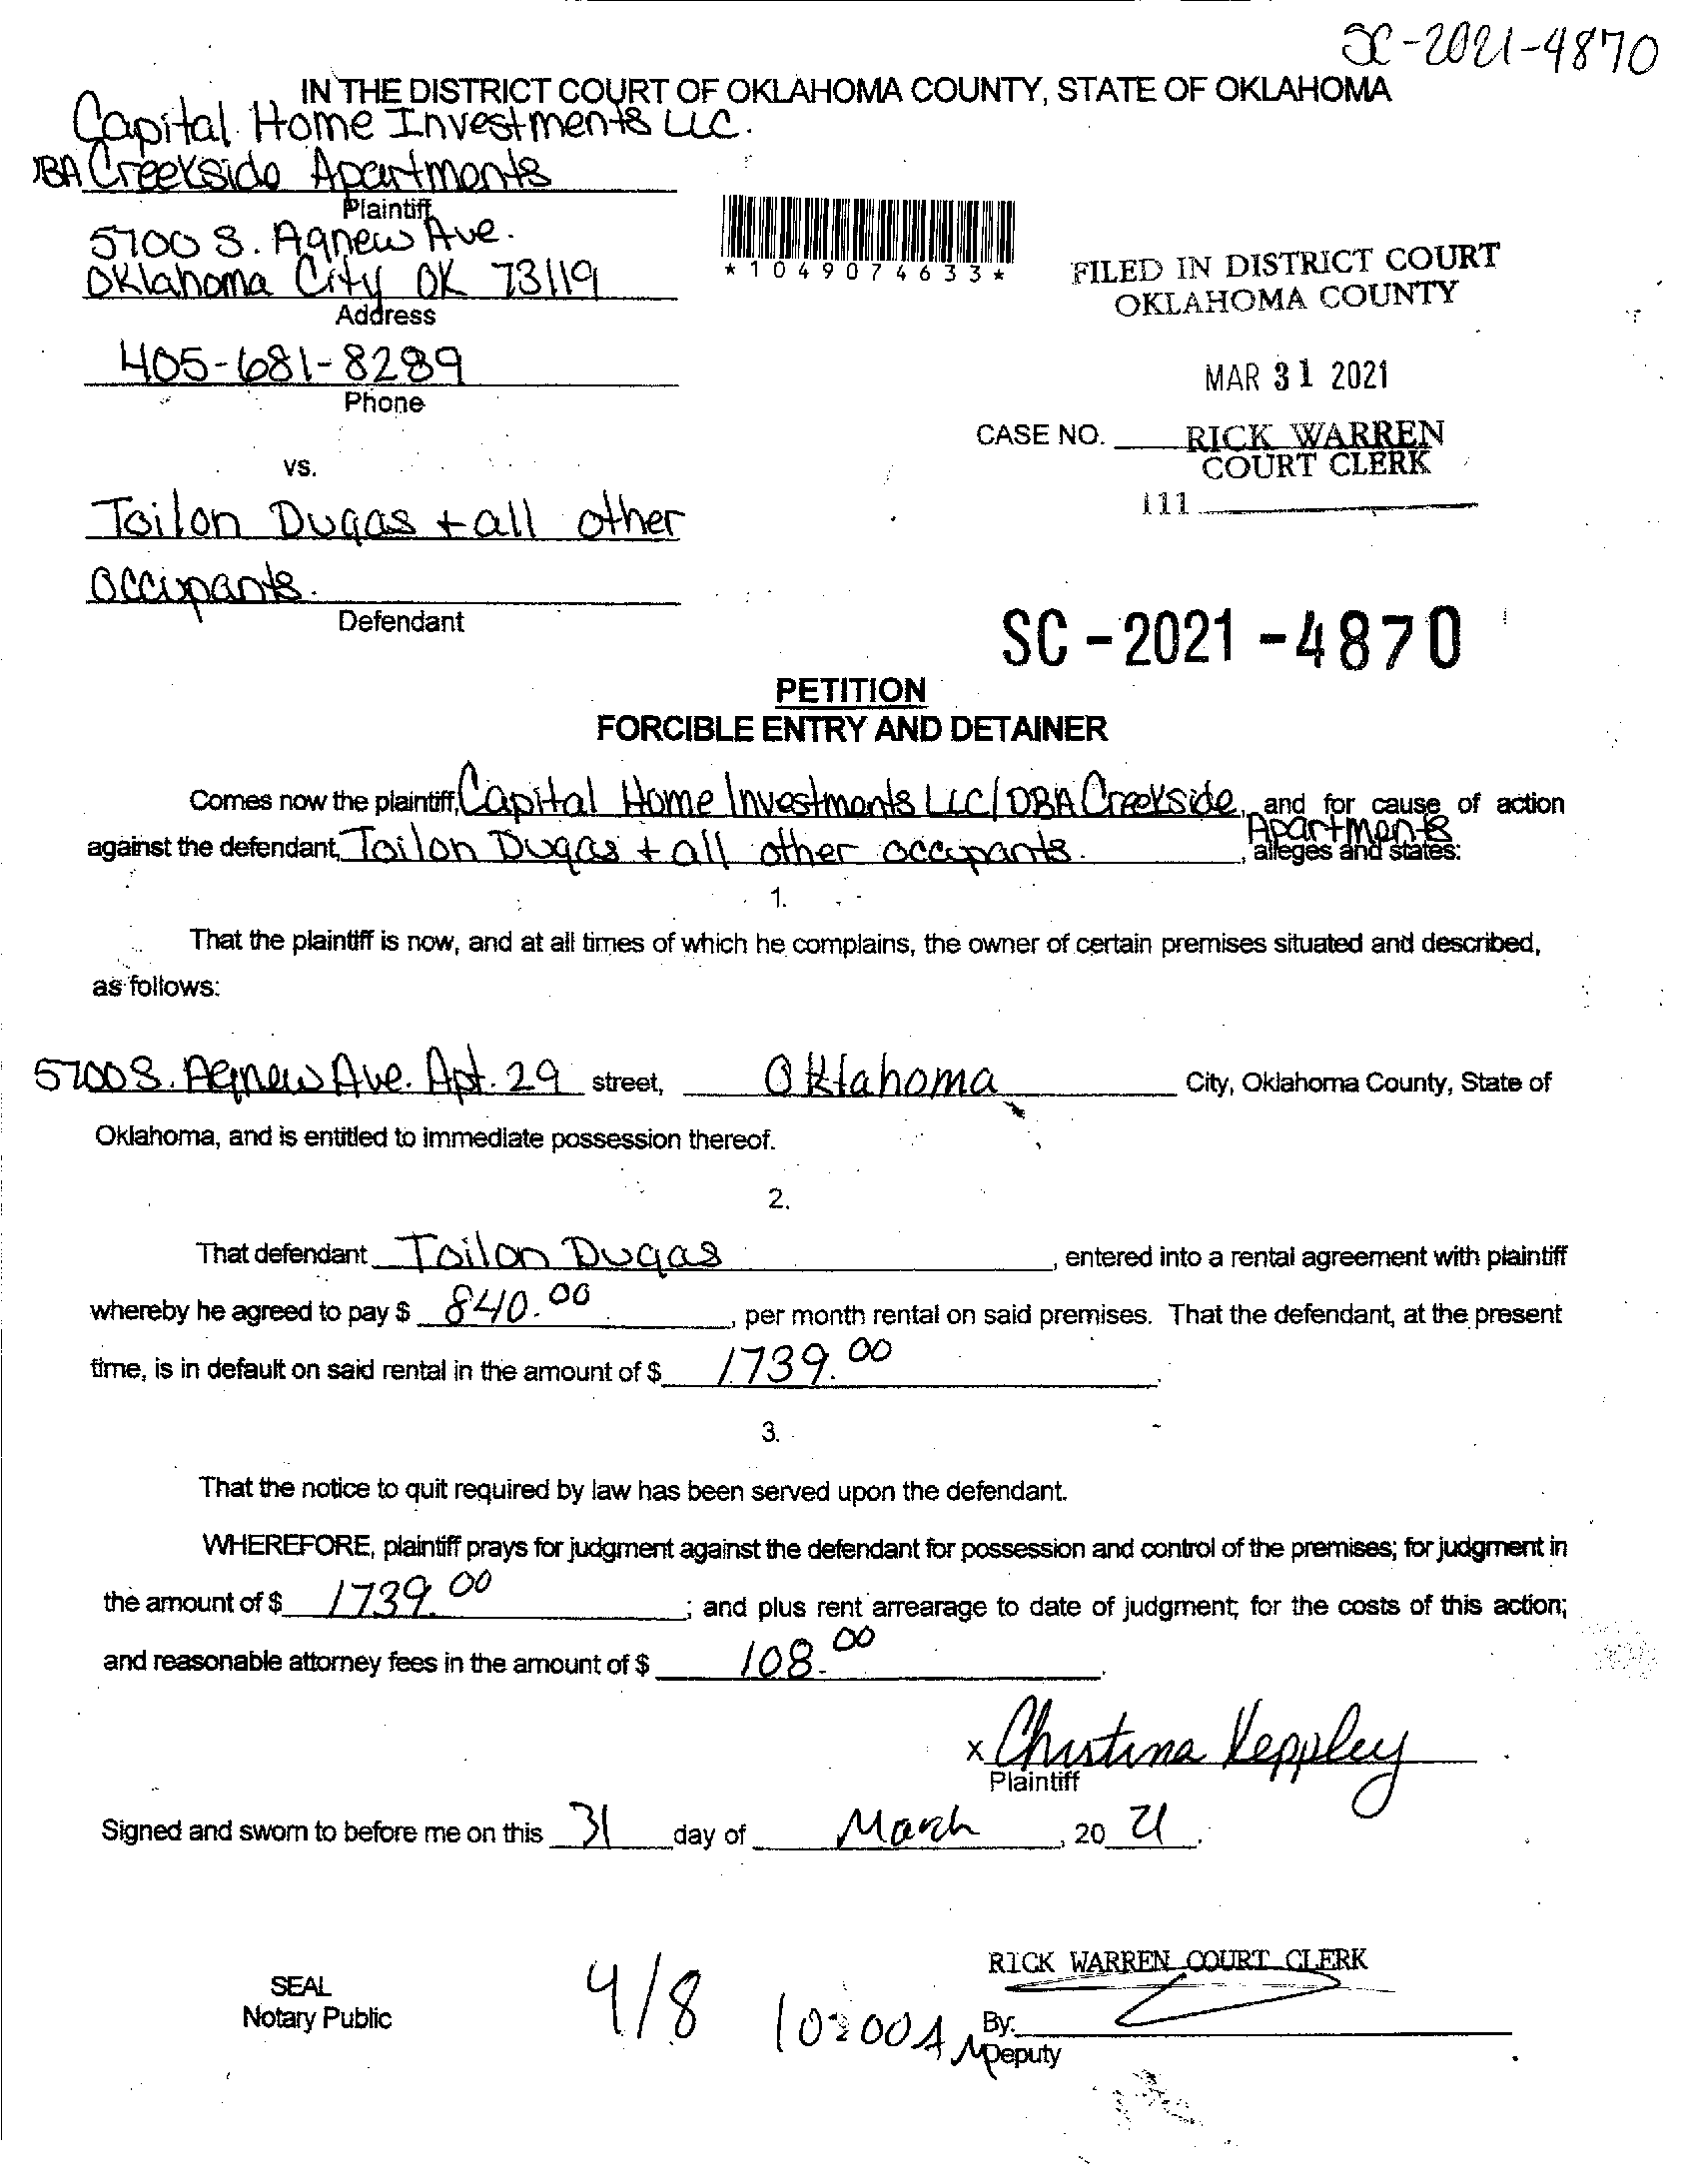 SC-2021-4870
IN THE DISTRICT COURT OF OKLAHOMA COUNTY, STATE OF OKLAHOMA
Capital Home Investments LLC.
DBA Creekside Apartments
Plaintiff
5700 S. Agnew Ave.
Oklahoma City OK 73119
Address
*1049074633*
FILED IN DISTRICT COURT
OKLAHOMA COUNTY
405-681-8289
Phone
MAR 31 2021
CASE NO. RICK WARREN
COURT CLERK
111
vs.
Toilon Dugas + all other
occupants.
Defendant
SC-2021-4870
PETITION
FORCIBLE ENTRY AND DETAINER
Comes now the plaintiff, Capital Home Investments LLC/DBA Creekside, and for cause of action
Apartments
against the defendant, Toilon Dugas + all other occupants. , alleges and states:
1.
That the plaintiff is now, and at all times of which he complains, the owner of certain premises situated and described,
as follows:
5700 S. Agnew Ave. Apt. 29 street, Oklahoma City, Oklahoma County, State of
Oklahoma, and is entitled to immediate possession thereof.
2.
That defendant Toilon Dugas , entered into a rental agreement with plaintiff
whereby he agreed to pay $ 840.00 , per month rental on said premises. That the defendant, at the present
time, is in default on said rental in the amount of $ 1739.00 .
3.
That the notice to quit required by law has been served upon the defendant.
WHEREFORE, plaintiff prays for judgment against the defendant for possession and control of the premises; for judgment in
the amount of $ 1739.00 ; and plus rent arrearage to date of judgment; for the costs of this action;
and reasonable attorney fees in the amount of $ 108.00 .
x Christina Keppley
Plaintiff
Signed and sworn to before me on this 31 day of March , 20 21 .
RICK WARREN COURT CLERK
SEAL
Notary Public
4/8 10:00AM
By:
Deputy